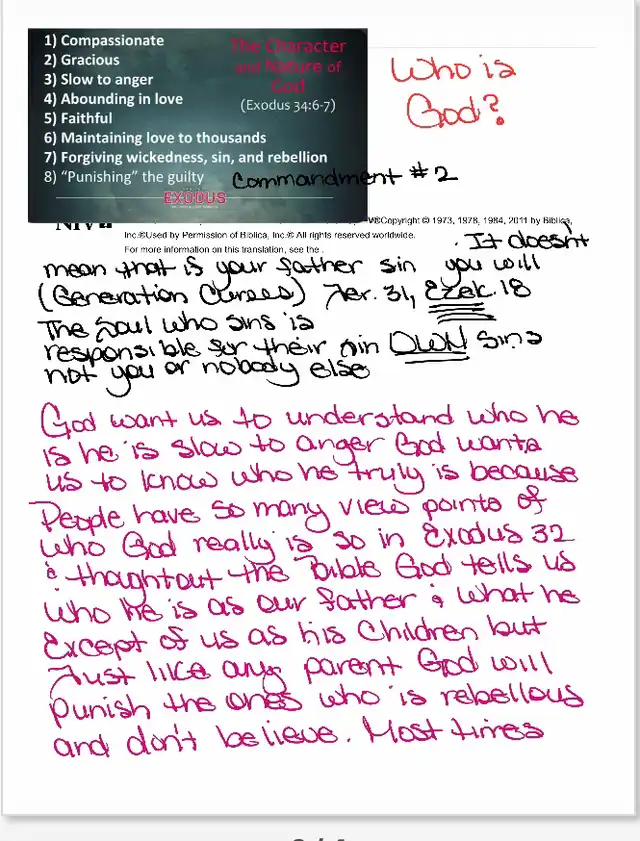 1) Compassionate
2) Gracious
3) Slow to anger
4) Abounding in love
5) Faithful
6) Maintaining love to thousands
7) Forgiving wickedness, sin, and rebellion
8) “Punishing” the guilty
The Character
and Nature of
God
(Exodus 34:6-7)
EXODUS
Who is
God?
Commandment #2
©Copyright © 1973, 1978, 1984, 2011 by Biblica,
Inc.®Used by Permission of Biblica, Inc.® All rights reserved worldwide.
For more information on this translation, see the .
. It doesn't
mean that is your father sin you will
(Generation Curses) Jer. 31, Ezek. 18
The Soul who sins is
responsible for their sin OWN sins
not you or nobody else
God want us to understand who he
is he is slow to anger God wants
us to know who he truly is because
People have so many view points of
who God really is so in Exodus 32
& thoughtout the Bible God tells us
who he is as our father & what he
Except of us as his Children but
Just like any parent God will
punish the ones who is rebellous
and don't believe. Most times